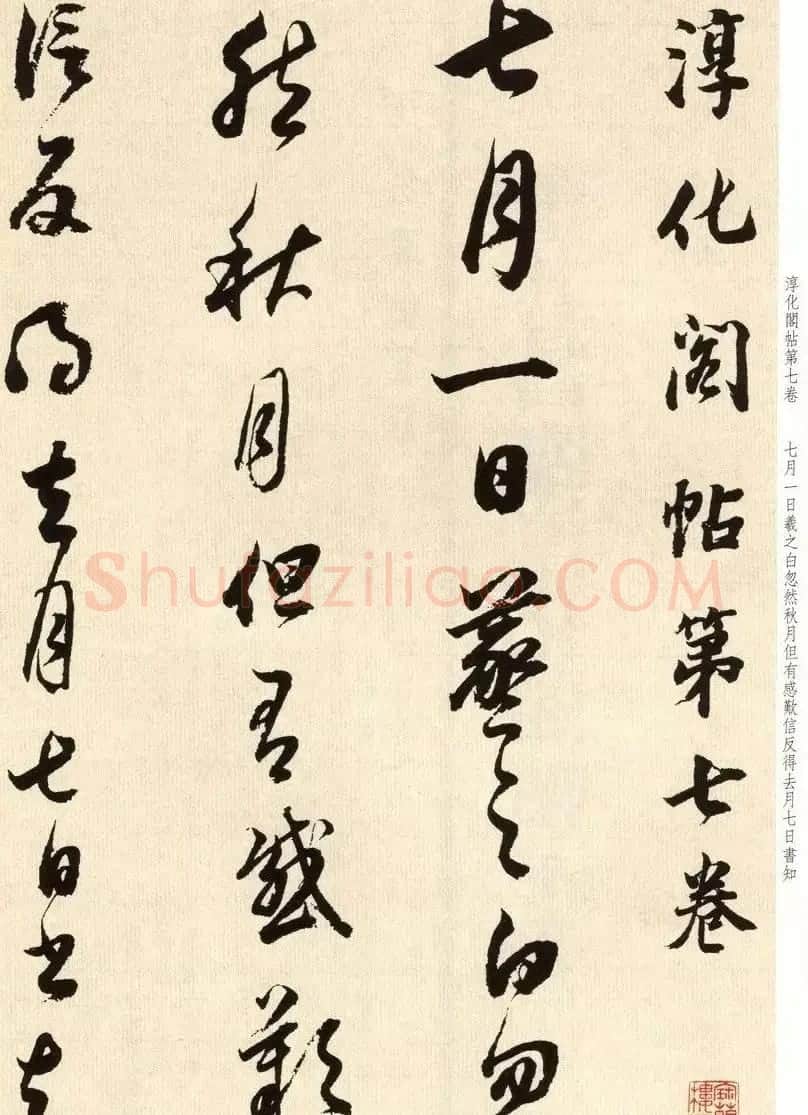 淳化閣帖第七卷 七月一日羲之白忽然秋月但有感歎信反得去月七日書知
淳化閣帖第七卷
七月一日羲之白忽
然秋月但有感歎
信反得去月七日書知
Shufaziliao.COM